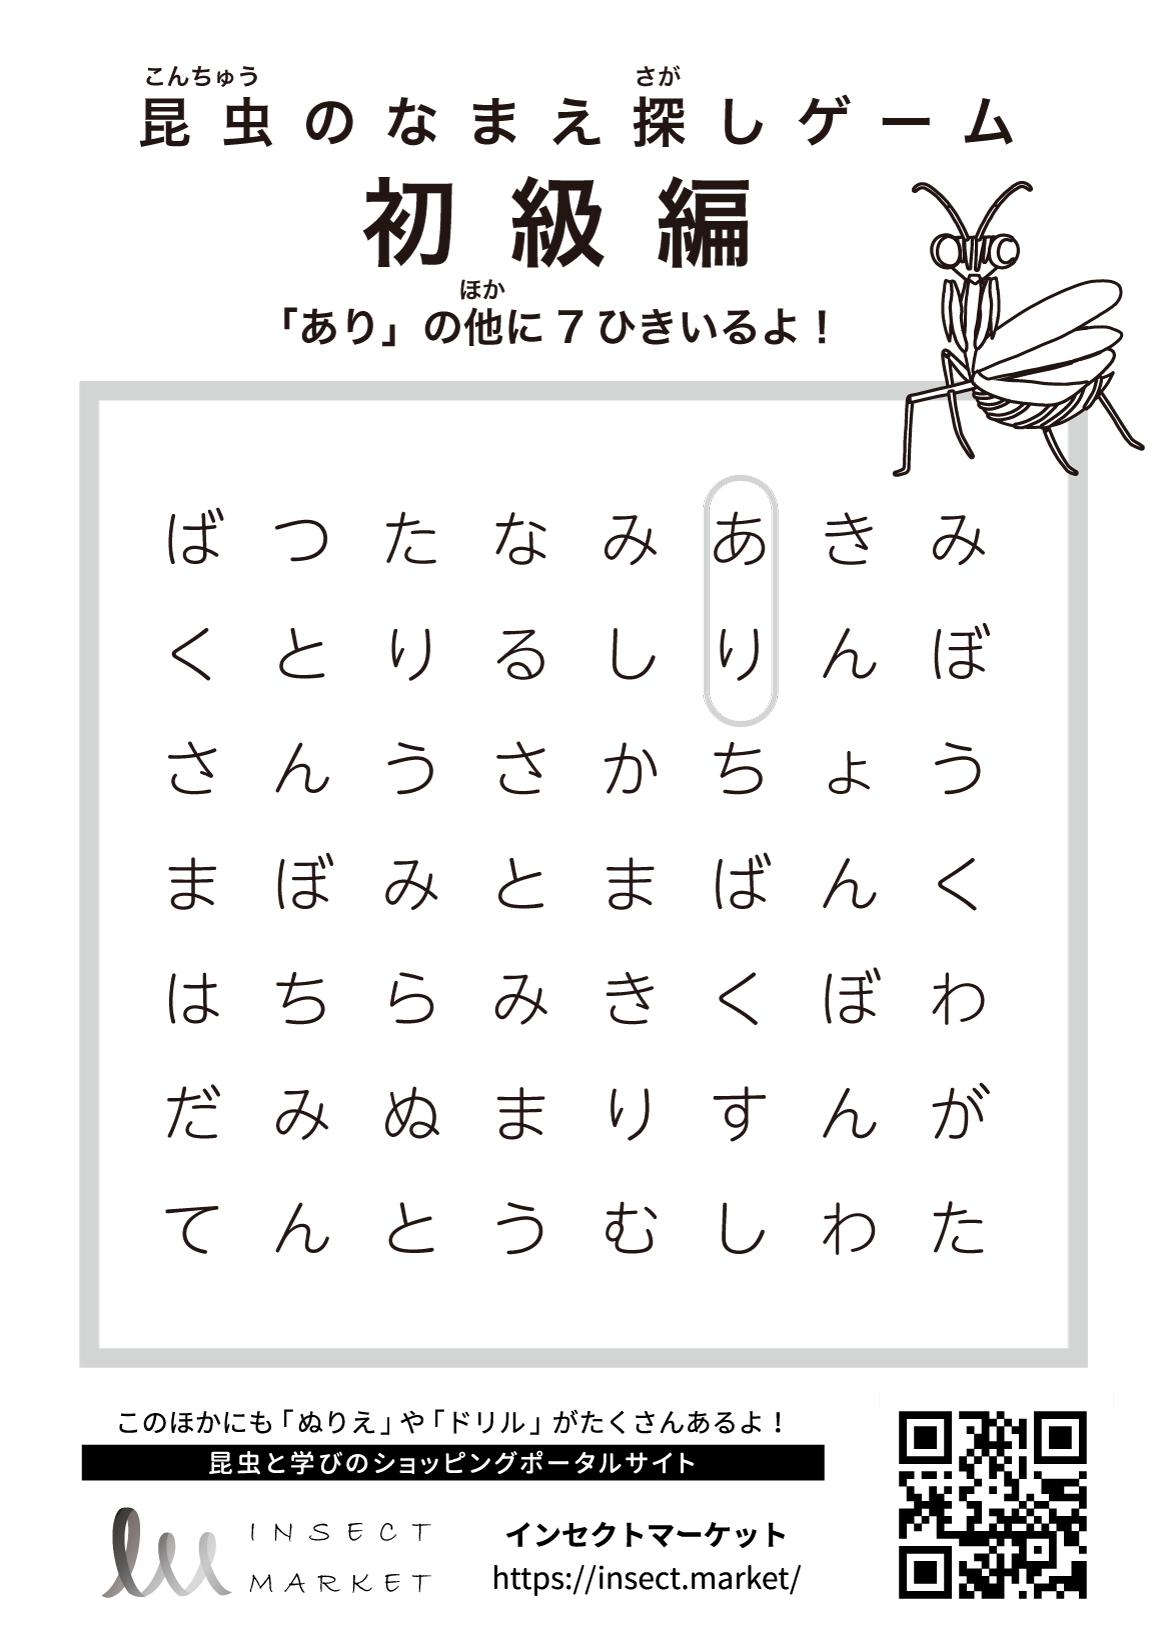 こんちゅう さが
昆虫のなまえ探しゲーム
初級編
ほか
「あり」の他に7ひきいるよ！
ばつたなみあきみ
くとりるしりんぼ
さんうさかちょう
まぼみとまばんく
はちらみきくぼわ
だみぬまりすんが
てんとうむしわた
このほかにも「ぬりえ」や「ドリル」がたくさんあるよ！
昆虫と学びのショッピングポータルサイト
INSECT
MARKET
インセクトマーケット
https://insect.market/